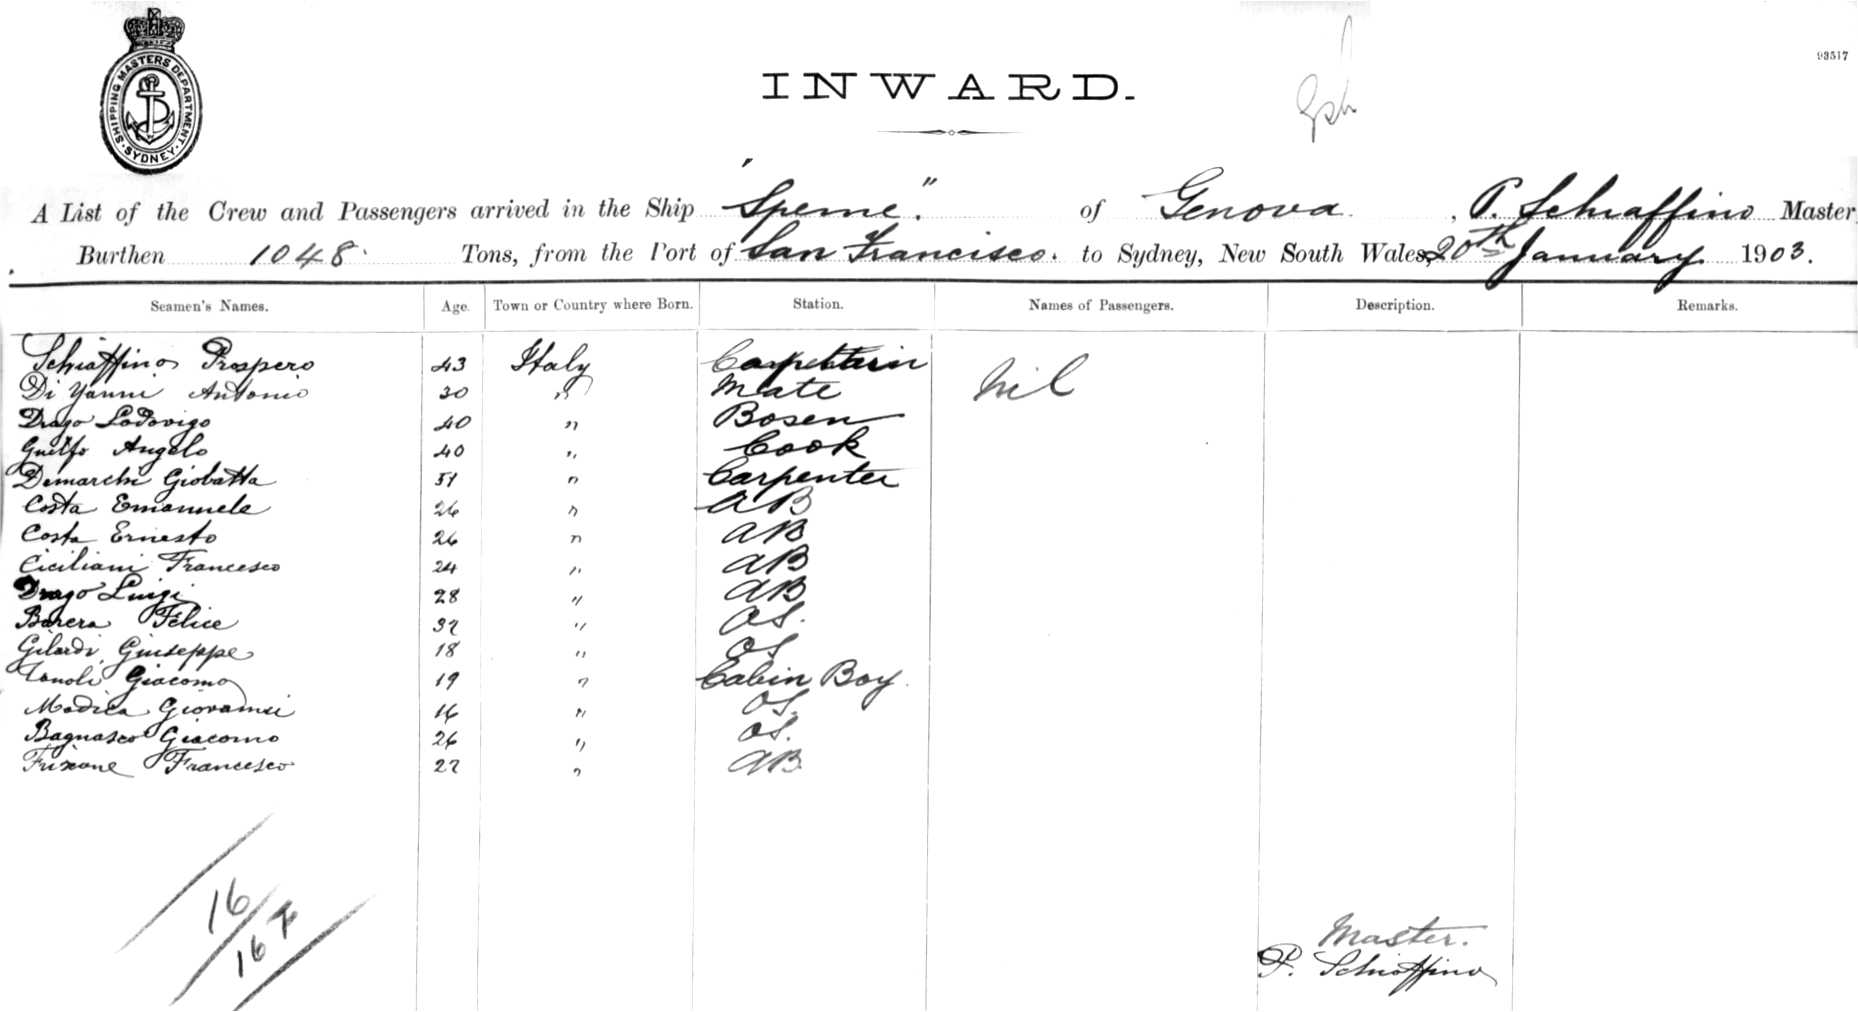 SHIPPING MASTERS DEPARTMENT. SYDNEY.
93517
INWARD.
A List of the Crew and Passengers arrived in the Ship "Speme." of Genova, P. Schiaffino Master,
Burthen 1048 Tons, from the Port of San Francisco. to Sydney, New South Wales, 20th January 1903.
Seamen's Names. Age. Town or Country where Born. Station. Names of Passengers. Description. Remarks.
Schiaffino Prospero 43 Italy Nil
Di Yanni Antonio 30 " Mate
Drago Lodovigo 40 " Bosen
Guelfo Angelo 40 " Cook
Demarchi Giobatta 51 " Carpenter
Costa Emanuele 26 " AB
Costa Ernesto 26 " AB
Ciciliani Francesco 24 " AB
Drago Luigi 28 " AB
Barera Felice 32 " OS.
Gilardi Giuseppe 18 " OS
Giacomo 19 " Cabin Boy.
Modica Giovanni 16 " OS.
Bagnasco Giacomo 26 " OS.
Frixone Francesco 22 " AB
16
16
Master.
P. Schiaffino